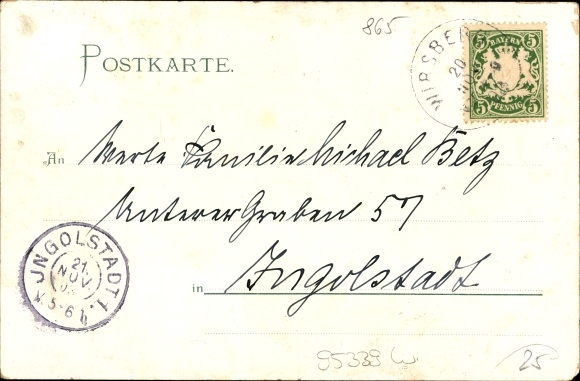 865
POSTKARTE.
WIRSBERG
20
NOV
5 BAYERN 5
5 PFENNIG 5
An Werte Familie Michael Betz
Unterer Graben 57
in Ingolstadt
JNGOLSTADT 1.
21.
NOV.
N. 5-6
95339 w
25